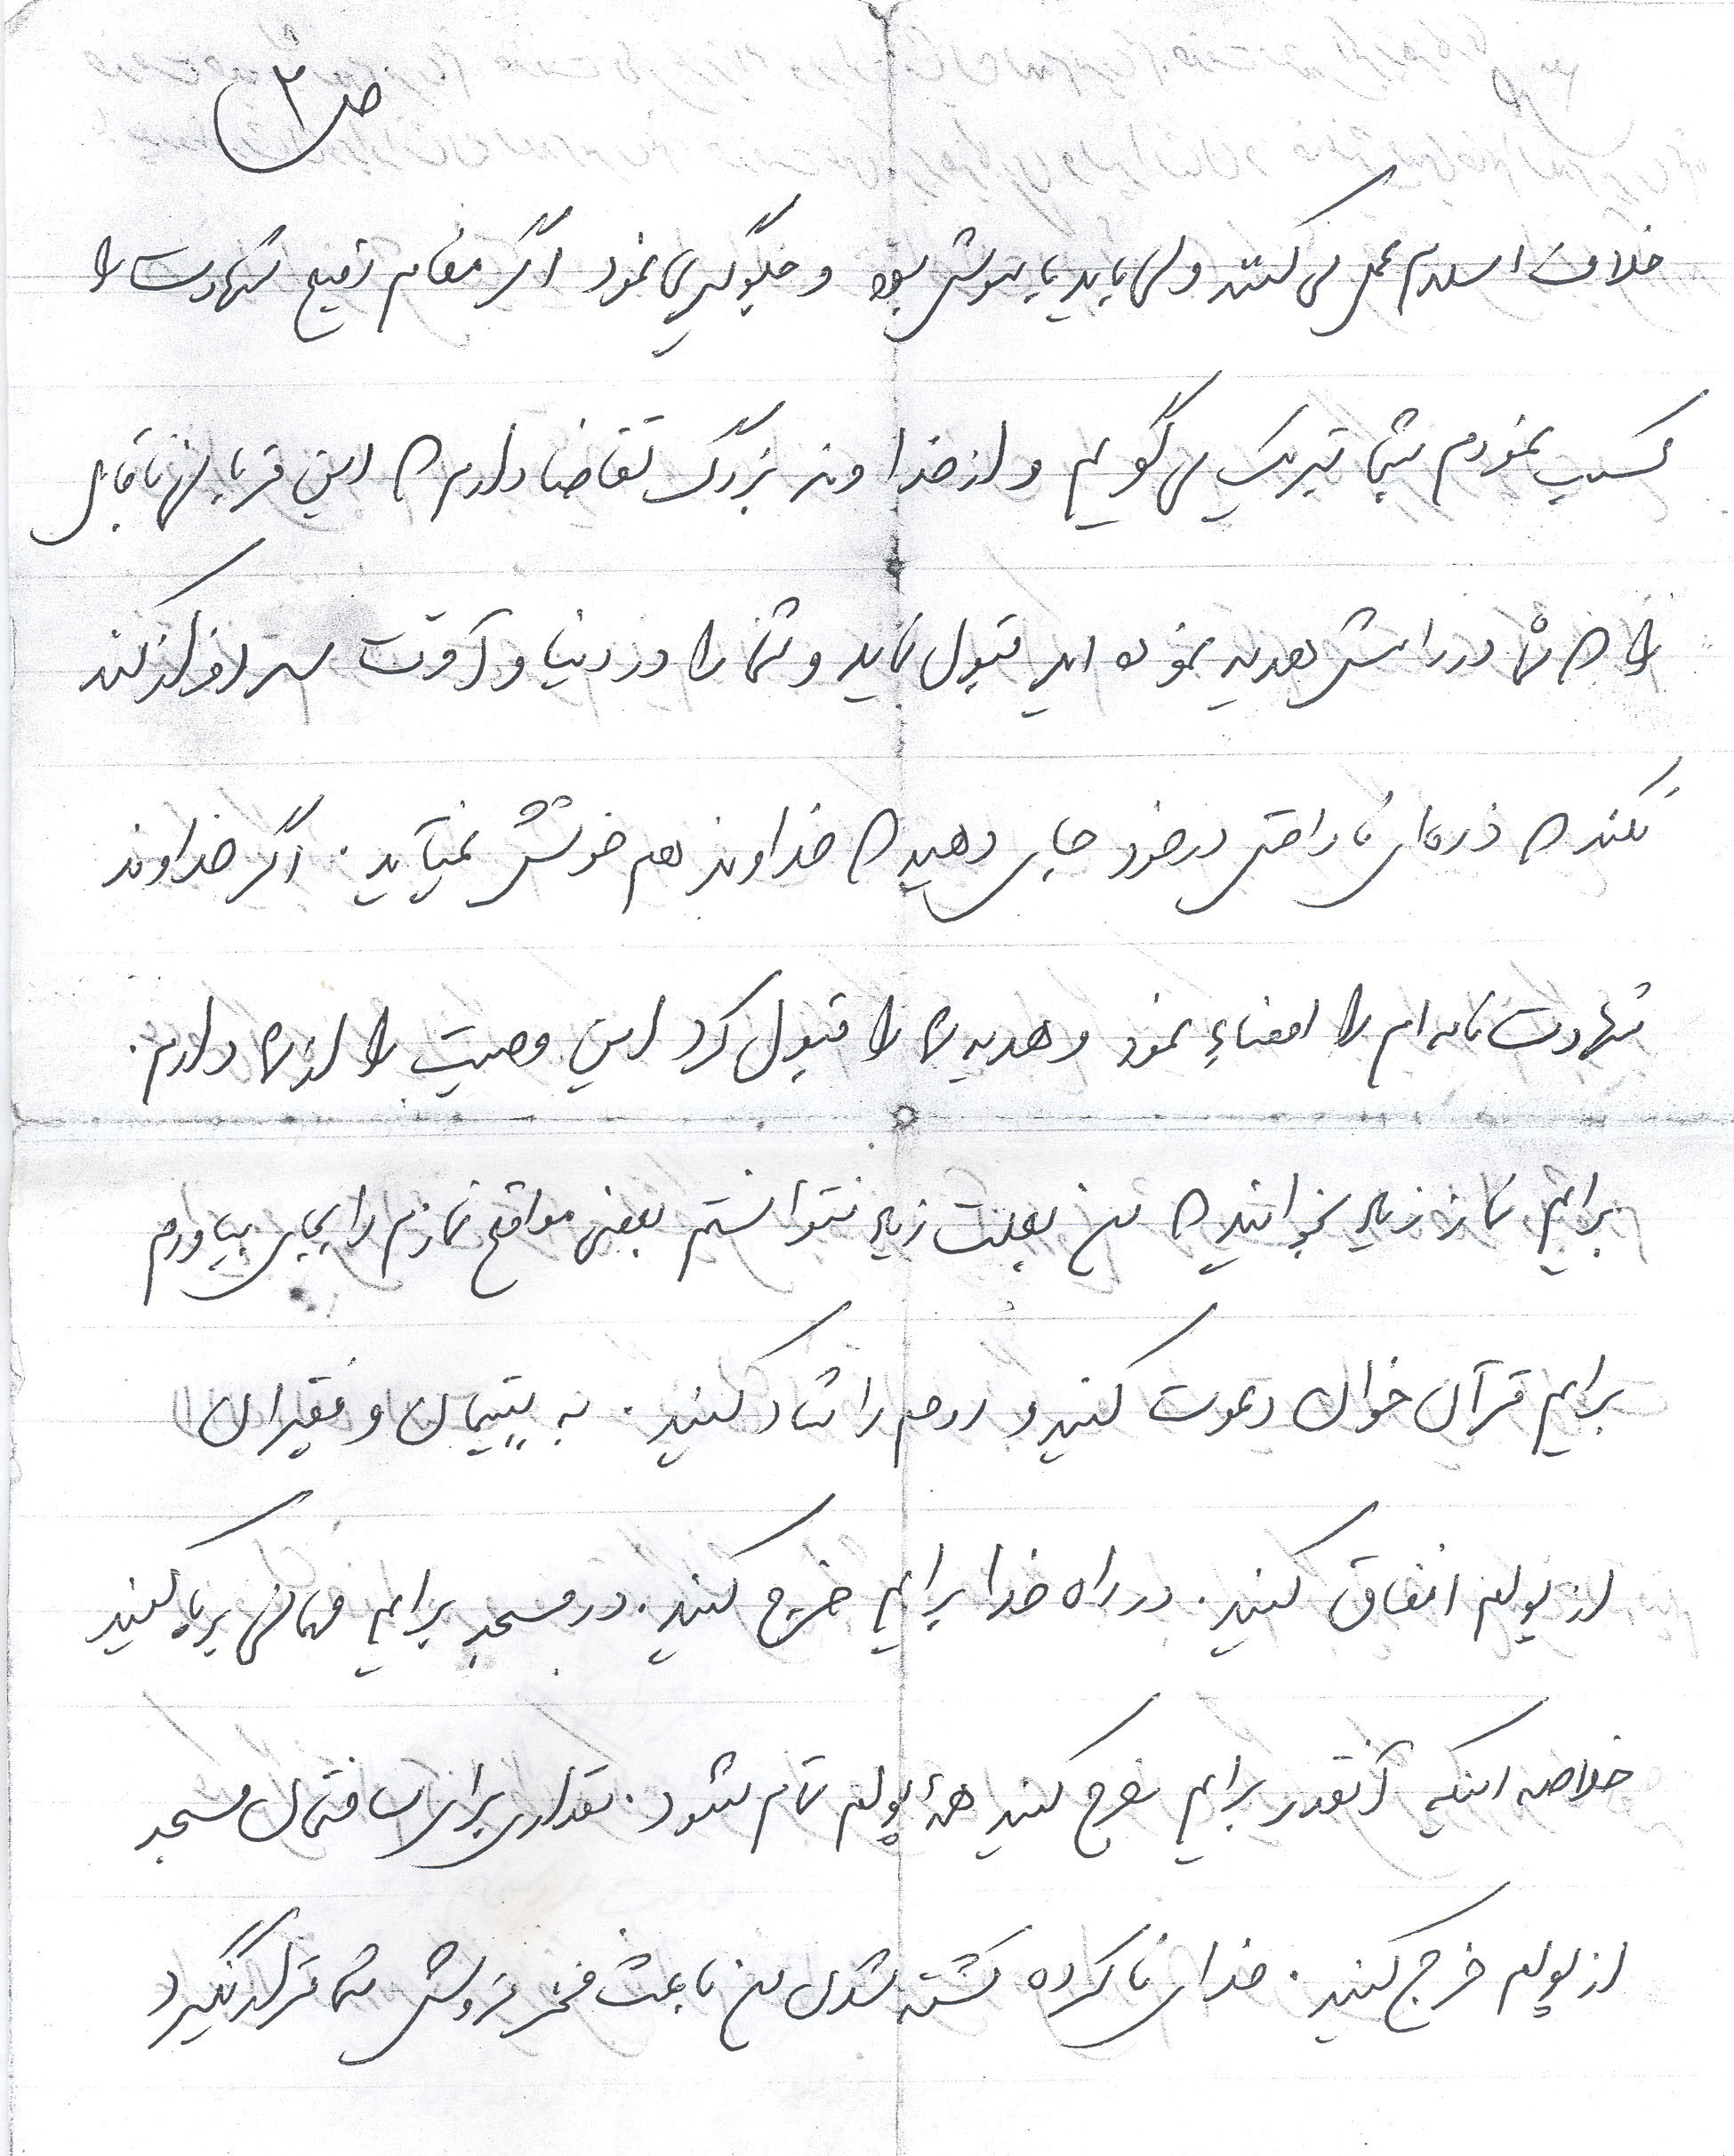 ص ۳
خلاف اسلام عمل می کنند ولی باید با هوش بود و جلوگیری نمود اگر مقام رفیع شهادت را
کسب نمودم بشما تبریک می گویم و از خداوند بزرگ تقاضا دارم که این قربانی ناقابل
را که شما در راهش هدیه نموده اید قبول نماید و شما را در دنیا و آخرت سرافراز کند
نکند که ذره‌ای ناراحتی در خود جای دهید که خداوند هم خوشش نمیآید. اگر خداوند
شهادت نامه ام را امضاء نمود و هدیه ما را قبول کرد این وصیت را از شما دارم.
برایم نماز زیاد بخوانید که من بعلت زیاد نتوانستم بعضی مواقع نمازم را بجای بیاورم
برایم قرآن خوان دعوت کنید و روحم را شاد کنید. به یتیمان و فقیران
از پولم انفاق کنید. در راه خدا برایم خرج کنید. در مسجد برایم مهمانی برپا کنید
خلاصه اینکه آنقدر برایم خرج کنید همهٔ پولم تمام شود. مقداری برای ساختمان مسجد
از پولم خرج کنید. خدای ناکرده کشته شدن من باعث فخر فروشی شما قرار نگیرد